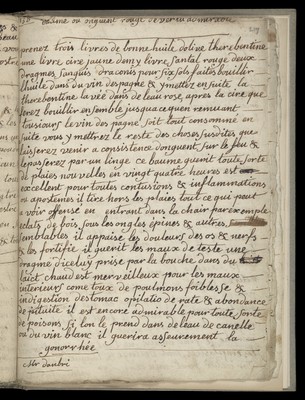 baume ou onguent rouge de vertu admirable
prenez trois livres de bonne huile dolive therebentine
une livre cire jaune demy livre santal rouge deux
dragmes sanguis draconis pour six sols faites bouillir
lhuile dans du vin despagne & y mettez en suite la
therebentine lavée dans de leau rose apres la cire que
ferez bouillir ensemble jusqua ce quen remuant
tousiours le vin despagne soit tout consumé en
suite vous y mettrez le reste des choses susdites que
laisserez venir a consistence donguent sur le feu &
le passerez par un linge ce baume guerit toute sorte
de plaies nouvelles en vingt quatre heures est
excellent pour toutes contusions & inflammations
ou apostemes il tire hors les plaies tout ce qui peut
avoir offensé en entrant dans la chair par exemple
eclats de bois sous les ongles épines & autres
semblables il appaise les douleurs des os & nerfs
& les fortifie il guerit les maux de teste une
dragme diceluy prise par la bouche dans du
laict chaud est merveilleux pour les maux
interieurs come toux de poulmons foiblesse &
indigestion destomac opilatio de rate & abondance
de pituite il est encore admirable pour toute sorte
de poisons si lon le prend dans de leau de canelle
ou du vin blanc il guerira asseurement la
gonorrhée
Mr daubri